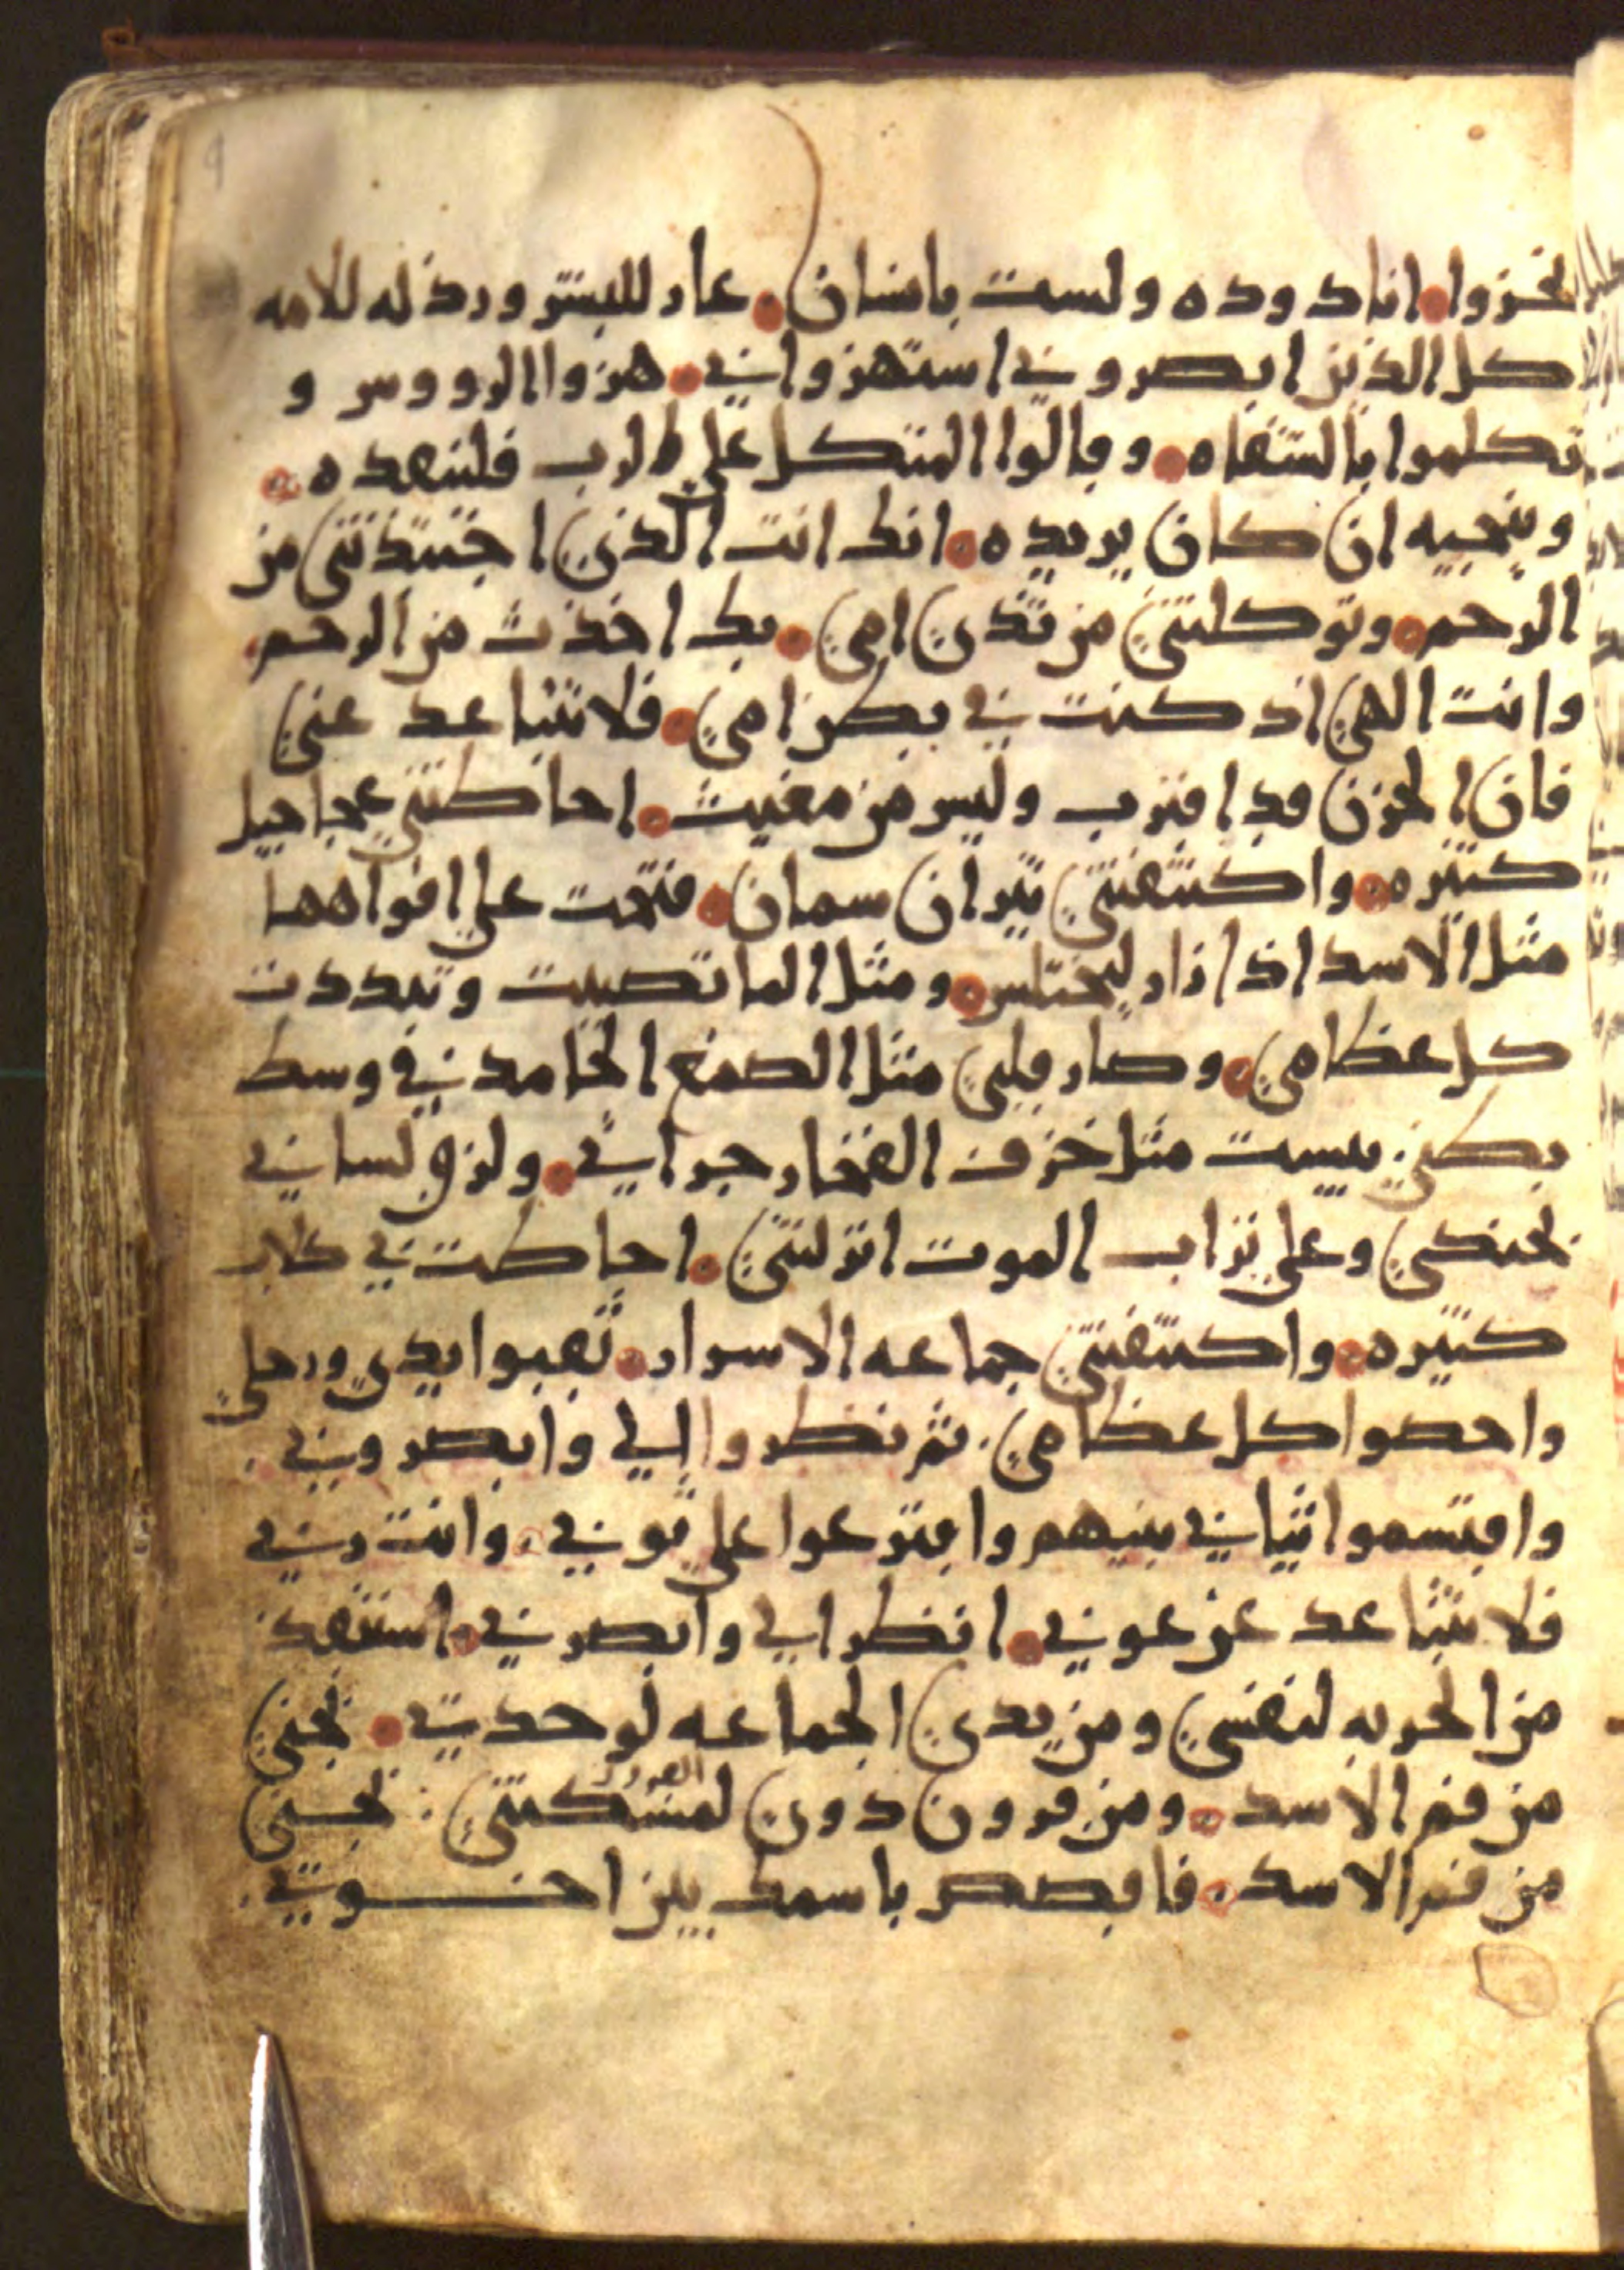 يخزوا انا دوده ولست بانسان عار للبشر ورذله للامه
كل الذين ابصروني استهزوا بي هزوا الرووس و
تكلموا بالشفاه وقالوا المتكل على الرب فلينقذه
وينجيه ان كان يريده انك انت الذي اجتبذتني من
الرحم وتوكلتي من ثدي امي بك اخذت من الرحم
وانت الهي اذ كنت في بطن امي فلا تتباعد عني
فان الحزن قد اقترب وليس من مغيث احاطتني عجاجيل
كثيره واكتنفتني ثيران سمان فتحت علي افواهها
مثل الاسد اذا زار ليختلس ومثل الما تصببت وتبددت
كل عظامي وصار قلبي مثل الصمع الجامد في وسط
بطني يبست مثل خزف الفخار جراتي ولزق لساني
بحنكي وعلى تراب الموت انزلتني احاطت بي كلاب
كثيره واكتنفتني جماعه الاسرار ثقبوا يدي ورجلي
واحصوا كل عظامي ثم نظروا الي وابصروني
واقتسموا ثيابي بينهم واقترعوا على ثوبي وانت ربي
فلا تتباعد عن عوني انظر الي وابصرني استنقذ
من الحربه لنفسي ومن يدي الجماعه لوحدتي نجني
من فم الاسد ومن قرون دون لمسكنتي نجني
من فم الاسد فاقصص باسمك بين اخوتي